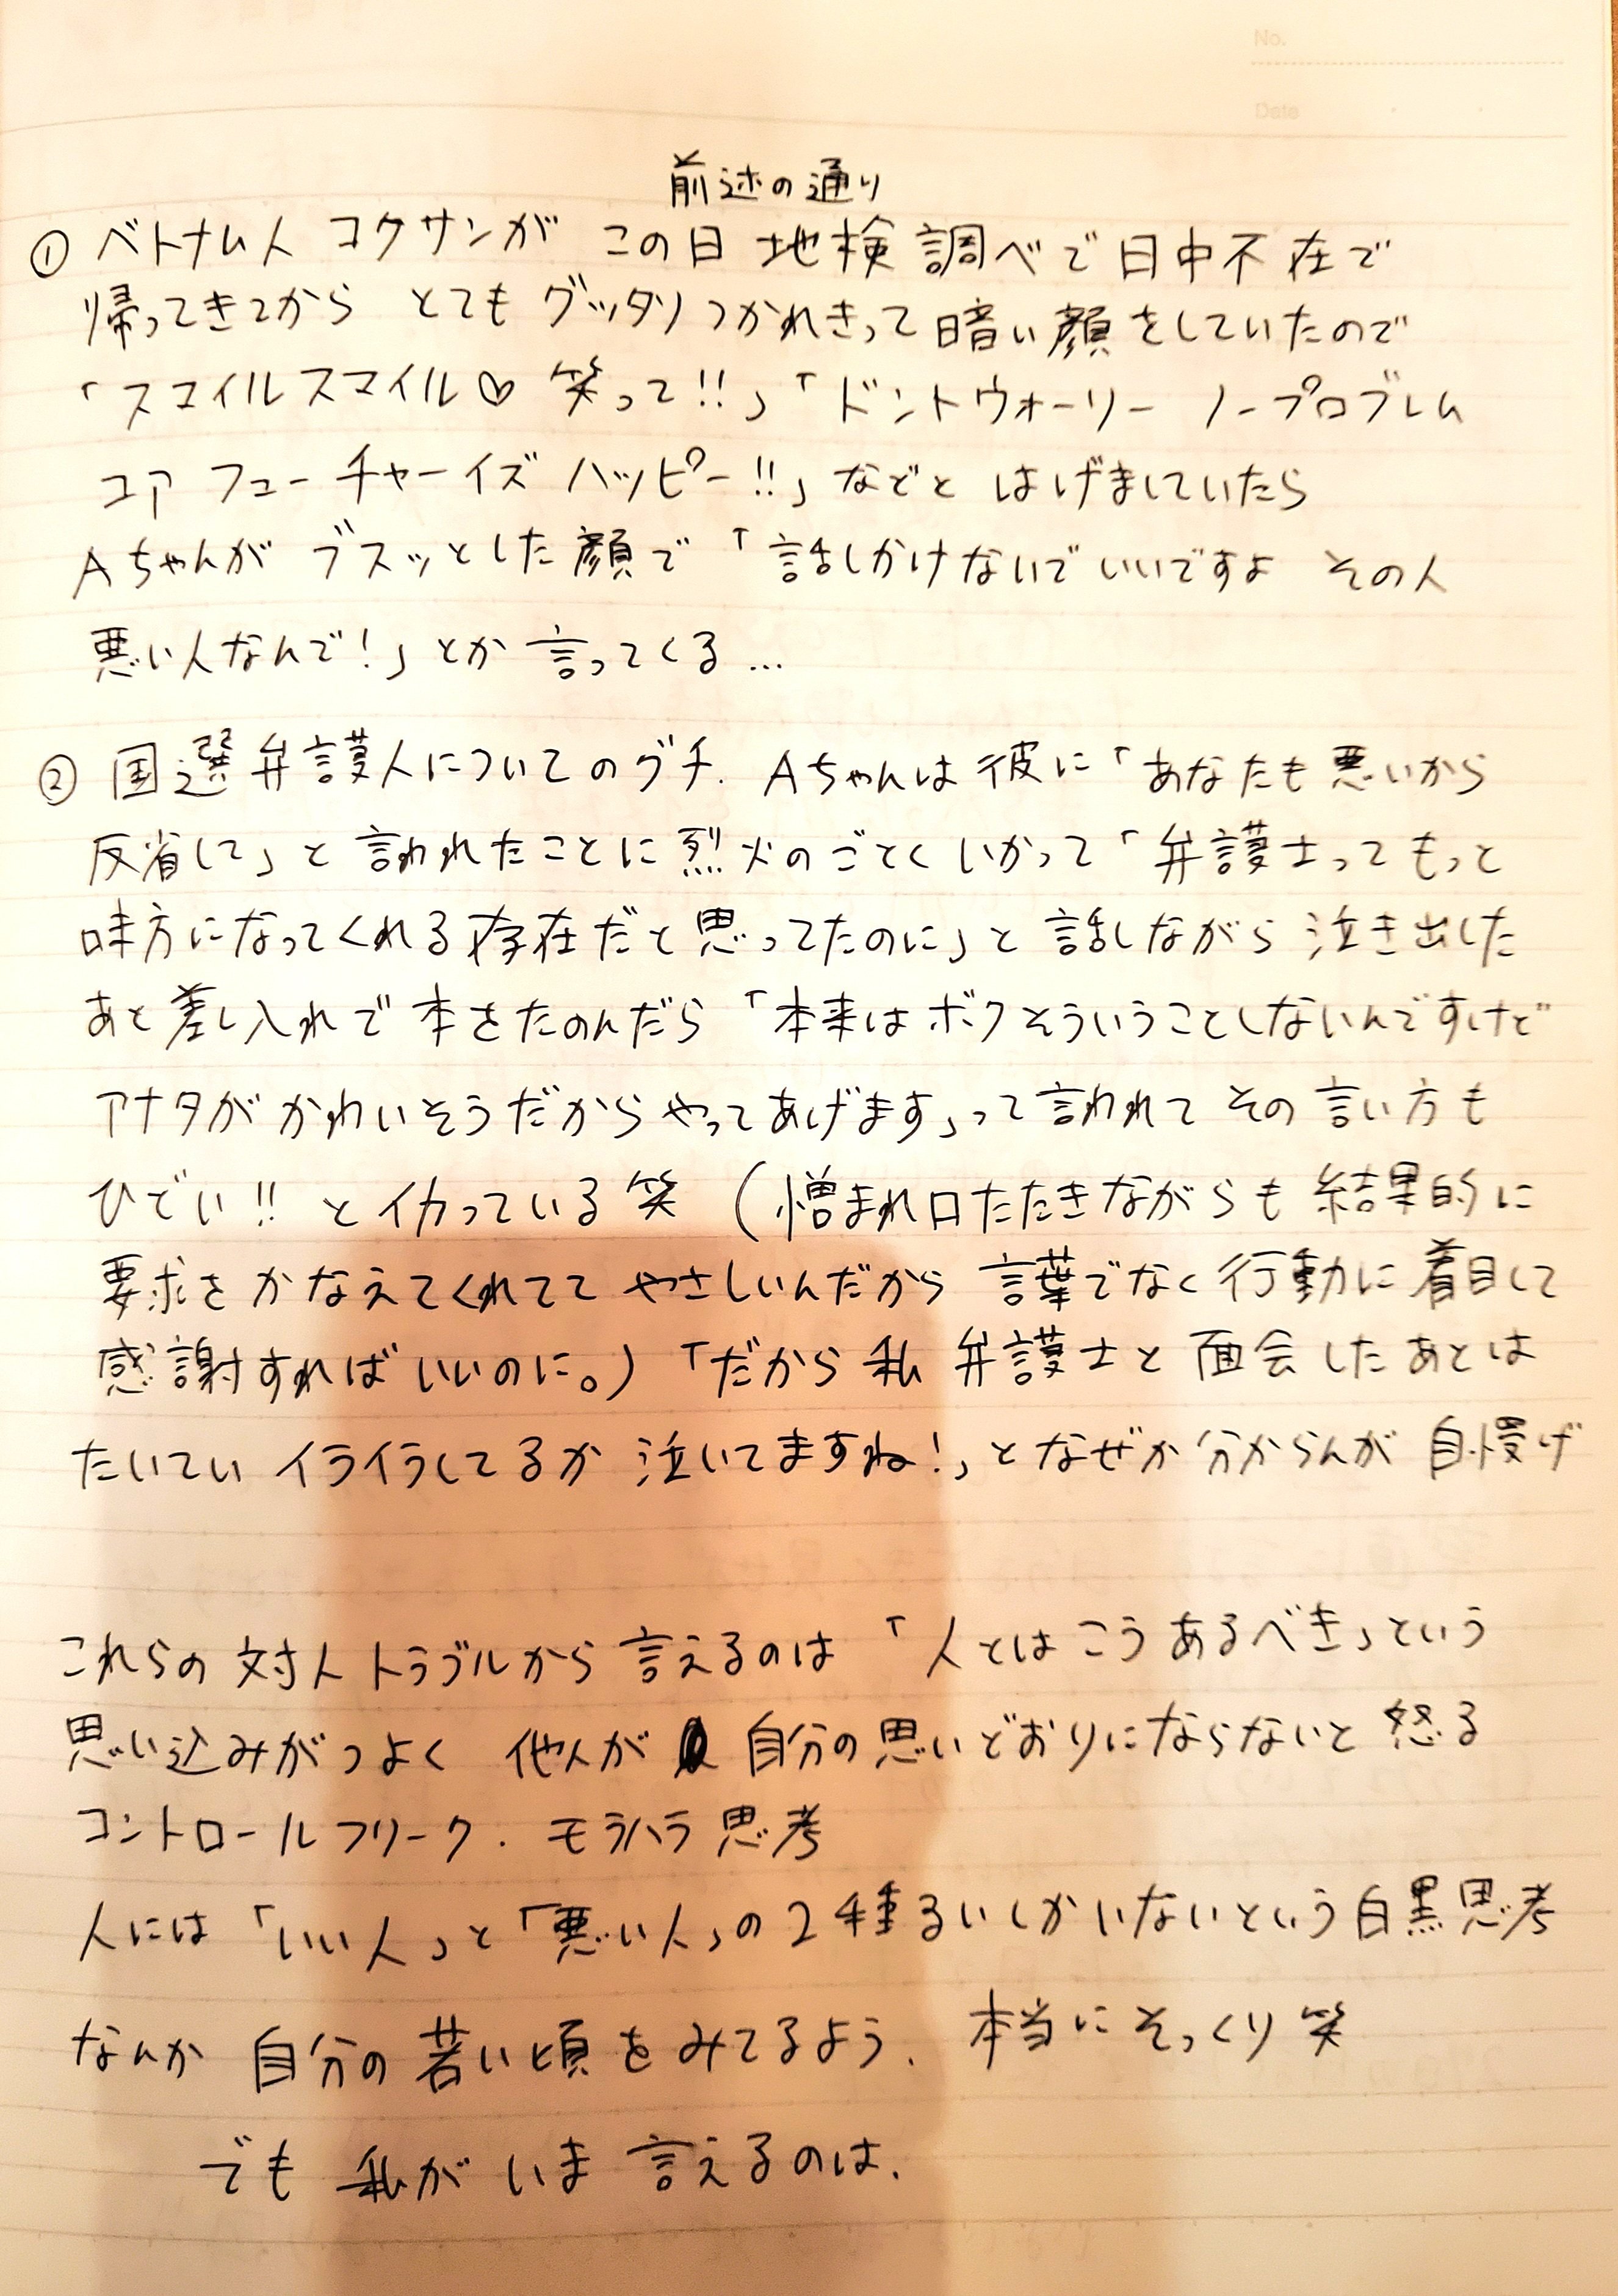 No.
Date
前述の通り
① ベトナム人 コクサンが この日 地検調べで日中不在で
帰ってきてから とても グッタリ つかれきって 暗い顔をしていたので
「スマイルスマイル♡ 笑って!!」「ドントウォーリー ノープロブレム
ユア フューチャーイズ ハッピー!!」などと はげましていたら
Aちゃんが ブスッとした顔で「話しかけないでいいですよ その人
悪い人なんで!」とか 言ってくる…
② 国選弁護人についてのグチ. Aちゃんは彼に「あなたも悪いから
反省して」と言われたことに烈火のごとくいかって「弁護士ってもっと
味方になってくれる存在だと思ってたのに」と話しながら泣き出した
あと差し入れで本をたのんだら「本来はボクそういうことしないんですけど
アナタが かわいそうだからやってあげます」って言われて その言い方も
ひどい!! とイカっている 笑 (憎まれ口たたきながらも 結果的に
要求をかなえてくれてて やさしいんだから 言葉でなく行動に着目して
感謝すればいいのに。)「だから私 弁護士と面会したあとは
たいてい イライラしてるか 泣いてますね!」となぜか分からんが 自慢げ
これらの 対人トラブルから 言えるのは 「人とはこうあるべき」という
思い込みがつよく 他人が 自分の思いどおりにならないと 怒る
コントロールフリーク. モラハラ思考
人には「いい人」と「悪い人」の2種るいしかいないという白黒思考
なんか 自分の若い頃をみてるよう. 本当にそっくり 笑
でも 私が いま 言えるのは.